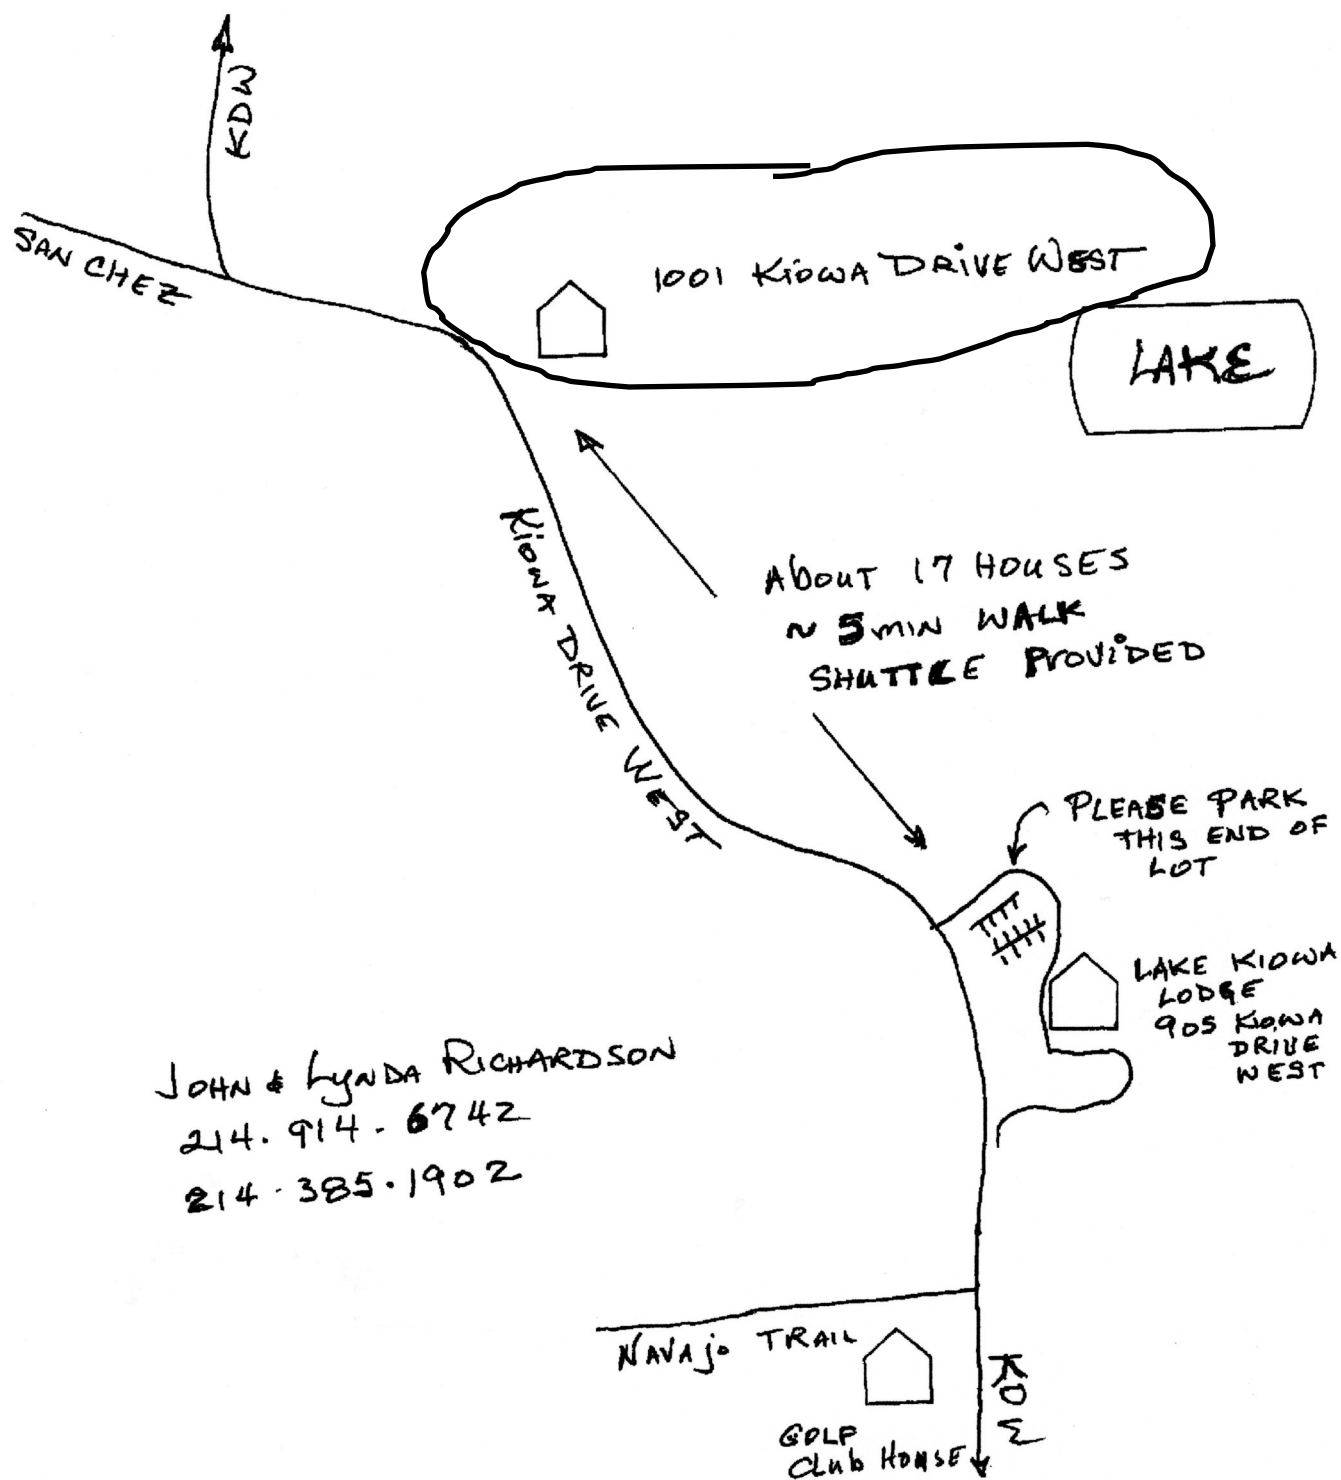 KDW
SANCHEZ
1001 KIOWA DRIVE WEST
LAKE
KIOWA DRIVE WEST
ABOUT 17 HOUSES
~ 5 MIN WALK
SHUTTLE PROVIDED
PLEASE PARK
THIS END OF
LOT
LAKE KIOWA
LODGE
905 KIOWA
DRIVE
WEST
JOHN & LYNDA RICHARDSON
214. 914. 6742
214.385.1902
NAVAJO TRAIL
KDW
GOLF
Club HOUSE